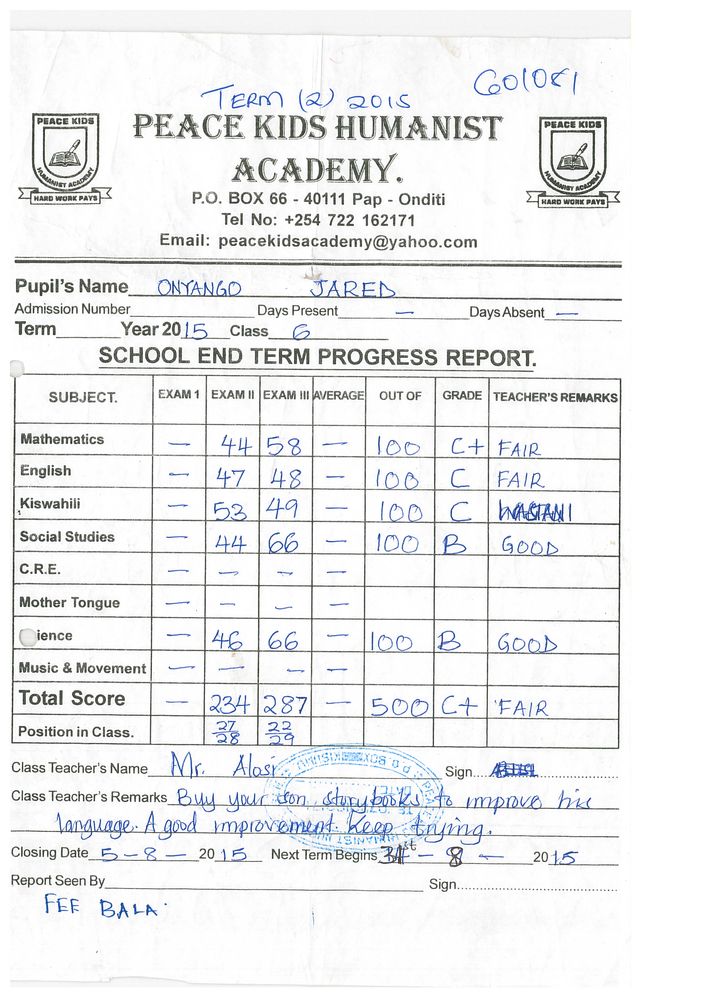 TERM (2) 2015
PEACE KIDS HUMANIST
ACADEMY.
PEACE KIDS
HUMANIST ACADEMY
HARD WORK PAYS
PEACE KIDS
HUMANIST ACADEMY
HARD WORK PAYS
P.O. BOX 66 - 40111 Pap - Onditi
Tel No: +254 722 162171
Email: peacekidsacademy@yahoo.com
Pupil's Name ONYANGO JARED
Admission Number Days Present — Days Absent —
Term Year 2015 Class 6
SCHOOL END TERM PROGRESS REPORT.
SUBJECT. EXAM 1 EXAM II EXAM III AVERAGE OUT OF GRADE TEACHER'S REMARKS
Mathematics — 44 58 — 100 C+ FAIR
English — 47 48 — 100 C FAIR
Kiswahili — 53 49 — 100 C WASTANI
Social Studies — 44 66 — 100 B GOOD
C.R.E. — — — —
Mother Tongue — — — —
ience — 46 66 — 100 B GOOD
Music & Movement — — — —
Total Score — 234 287 — 500 C+ FAIR
Position in Class. 27/28 22/29
Class Teacher's Name Mr. Alosi Sign.
Class Teacher's Remarks Buy your son storybooks to improve his
language. A good improvement. Keep trying.
Closing Date 5 - 8 - 2015 Next Term Begins 31st - 8 - 2015
Report Seen By Sign.
FEE BALA.